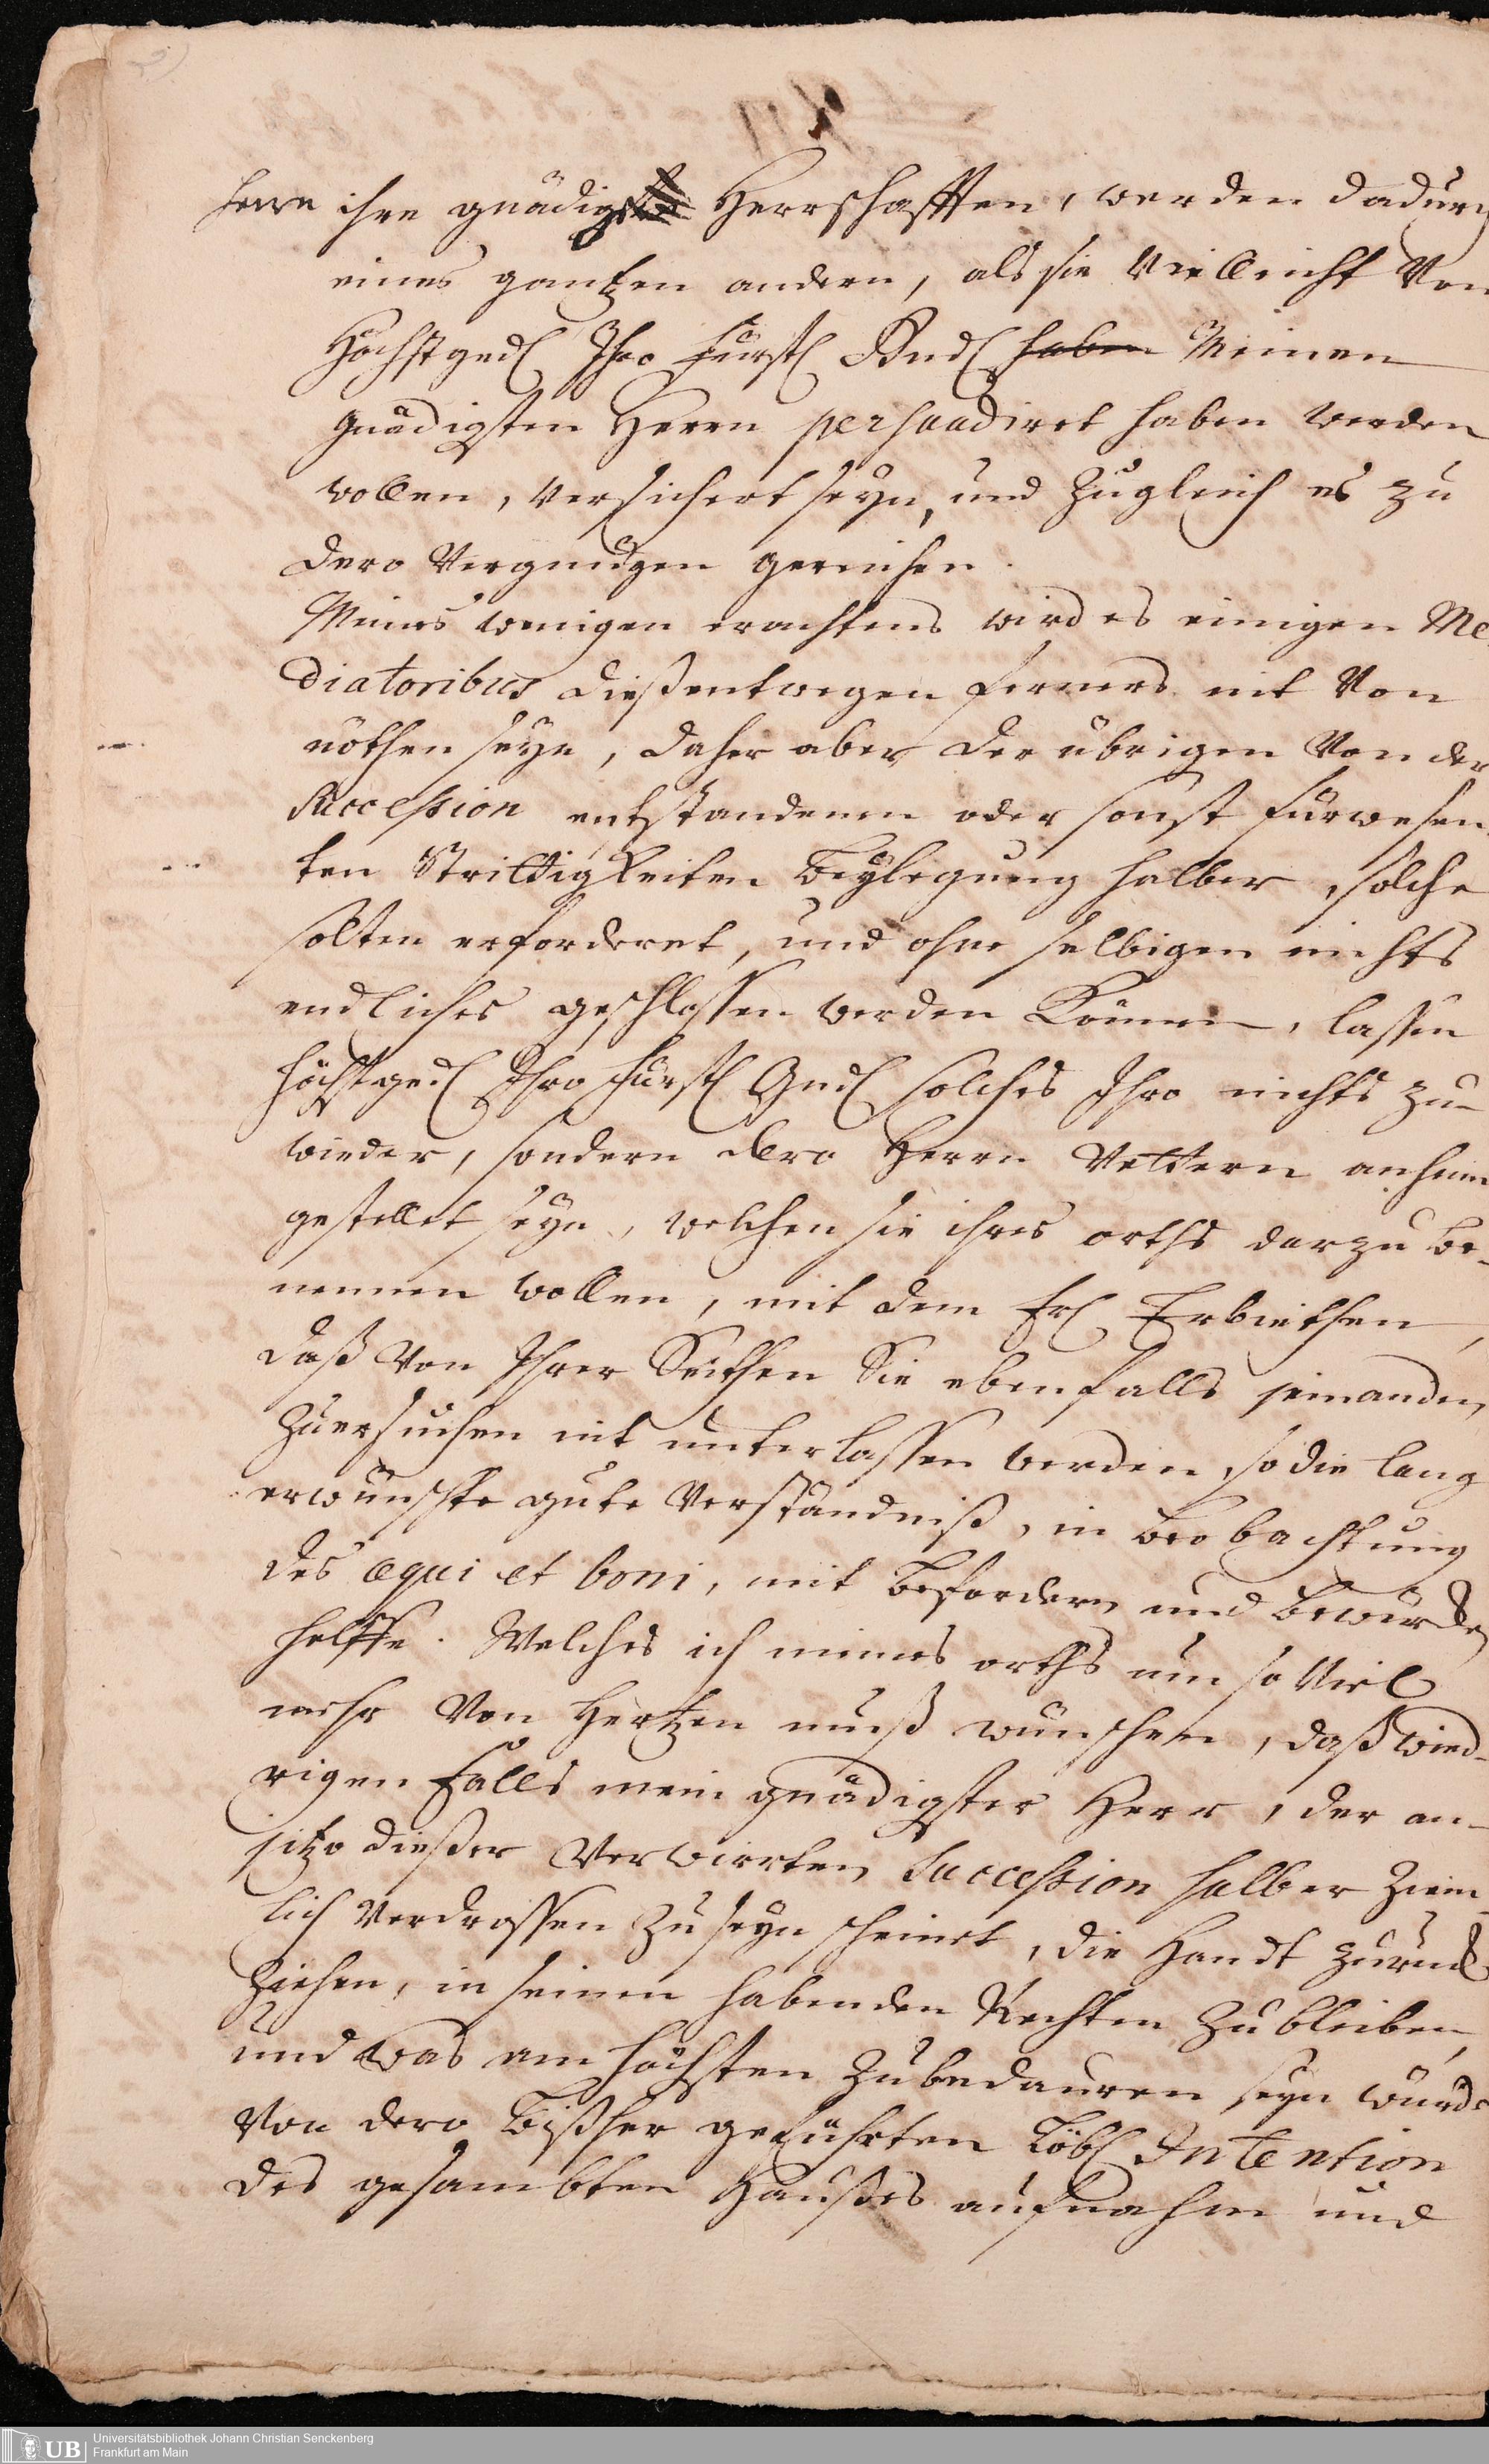 Herrn ihre gnädigste Herrschafften, werden dadurch
eines gantzen andern, als sie Villeicht Von
Höchstged. Ihro Fürstl. Gnd. haben Meinen
gnädigsten Herrn persuadiret haben werden
wollen, Versichert seyn, und Zugleich es zu
dero Vergnügen gereichen.
Meines wenigen erachtens wird es einigen Me-
diatoribus dießentwegen ferners nit Von
nöthen seyn, daher aber der übrigen Von der
Succession entstandenen oder sonst fürwesen-
ten Strittigkeiten Beylegung halber, solche
solten erforderet, und ohne selbigen nichts
endliches geschlossen werden Können, lassen
höchstged. Ihro Fürstl. Gnd. solches Ihro nichts zu-
wieder, sondern dero Herrn Vettern anheim
gestellet seyn, welchen sie ihres orths darzu be-
nennen wollen, mit dem Erbiethen,
daß Von Ihrer Seithen Sie ebenfalls jemanden
Zuersuchen nit unterlassen werden, so die lang
erwünschte gute Verständniß, in beobachtung
des æqui et boni, mit befordern und bewürcken
helffe. Welches ich meines orths um so Viel
mehr Von Hertzen muß wünschen, daß wied-
rigen Falls mein gnädigster Herr, der an-
jitzo dießer Verwirrten Succession halber Ziem-
lich Verdrossen Zu seyn scheinet, die Handt zurück
Ziehen, in seinen habenden Rechten Zu bleiben,
und was am höchsten Zubedauren seyn würde
Von dero bißher geführten Löbl. Intention
des gesambten Haußes aufnahm und
Universitätsbibliothek Johann Christian Senckenberg
Frankfurt am Main
UB